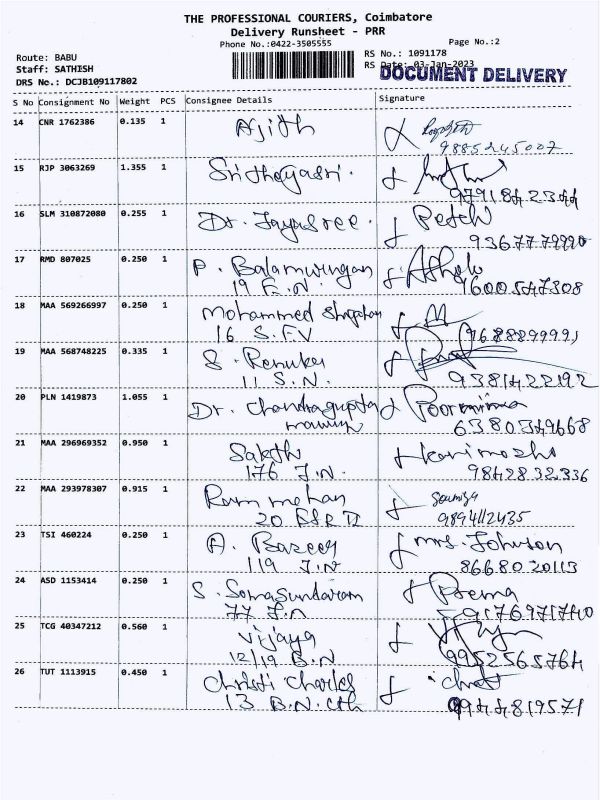 THE PROFESSIONAL COURIERS, Coimbatore
Delivery Runsheet - PRR
Phone No.:0422-3505555
Page No.:2
Route: BABU
Staff: SATHISH
DRS No.: DCJB109117802
RS No.: 1091178
RS Date: 03-Jan-2023
DOCUMENT DELIVERY
S No Consignment No Weight PCS Consignee Details Signature
14 CNR 1762386 0.135 1 Ajith
9885245007
15 RJP 3063269 1.355 1 Srithegasri.
16 SLM 310872080 0.255 1 Dr. Jayasree. Petchi
9367779990
17 RMD 807025 0.250 1 P. Balamurugan Ashok
19 E.N. 9600547308
18 MAA 569266997 0.250 1 Mohammed
16 S.F.V
19 MAA 568748225 0.335 1 S. Renuka
11 S.N. 9381422192
20 PLN 1419873 1.055 1 Dr. Chandragupta Poornima
6380349668
21 MAA 296969352 0.950 1 Sakthi Kanimozhi
176 J.N. 9842832336
22 MAA 293978307 0.915 1 Ram mohan Soumya
20 BSR II 9894112435
23 TSI 460224 0.250 1 A. Bazeer Mrs. Johnson
119 J.N 8668020113
24 ASD 1153414 0.250 1 S. Somasundaram Prema
77 J.N 9176971740
25 TCG 40347212 0.560 1 Vijaya
12/19 B.N 9952565764
26 TUT 1113915 0.450 1 Christi Charles
13 B.N. Cth 9944819571